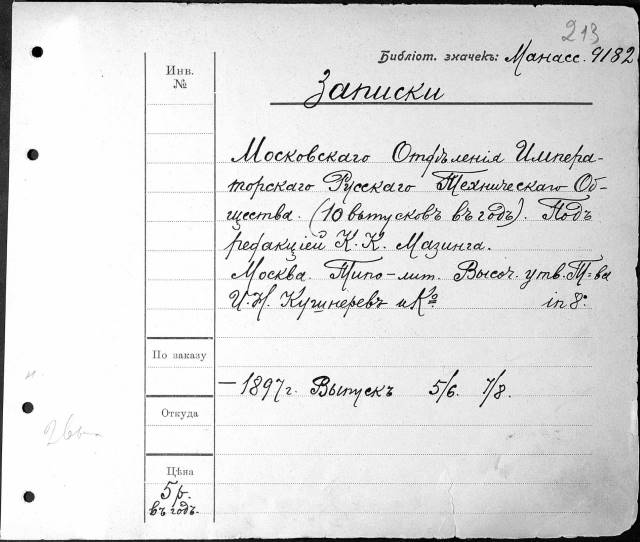 213
Библіот. значекъ: Манасс. 9182
Инв.
№
Записки
Московскаго Отдѣленія Импера-
торскаго Русскаго Техническаго Об-
щества. (10 выпусковъ въ годъ). Подъ
редакціей К. К. Мазинга.
Москва. Типо-лит. Высоч. утв. Т-ва
И. Н. Кушнеревъ и Ко in 8º
По заказу
— 1897 г. Выпускъ 5/6. 7/8.
Откуда
Цѣна
5 р.
въ годъ.